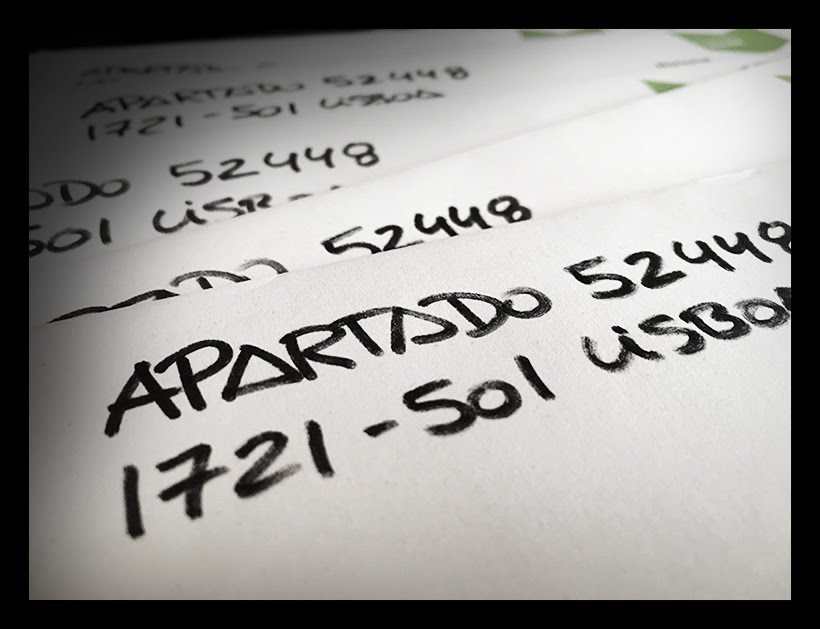 APARTADO 52448
1721-501 LISBOA
ODO 52448
501 LISB
52448
APARTADO 52448
1721-501 LISBOA